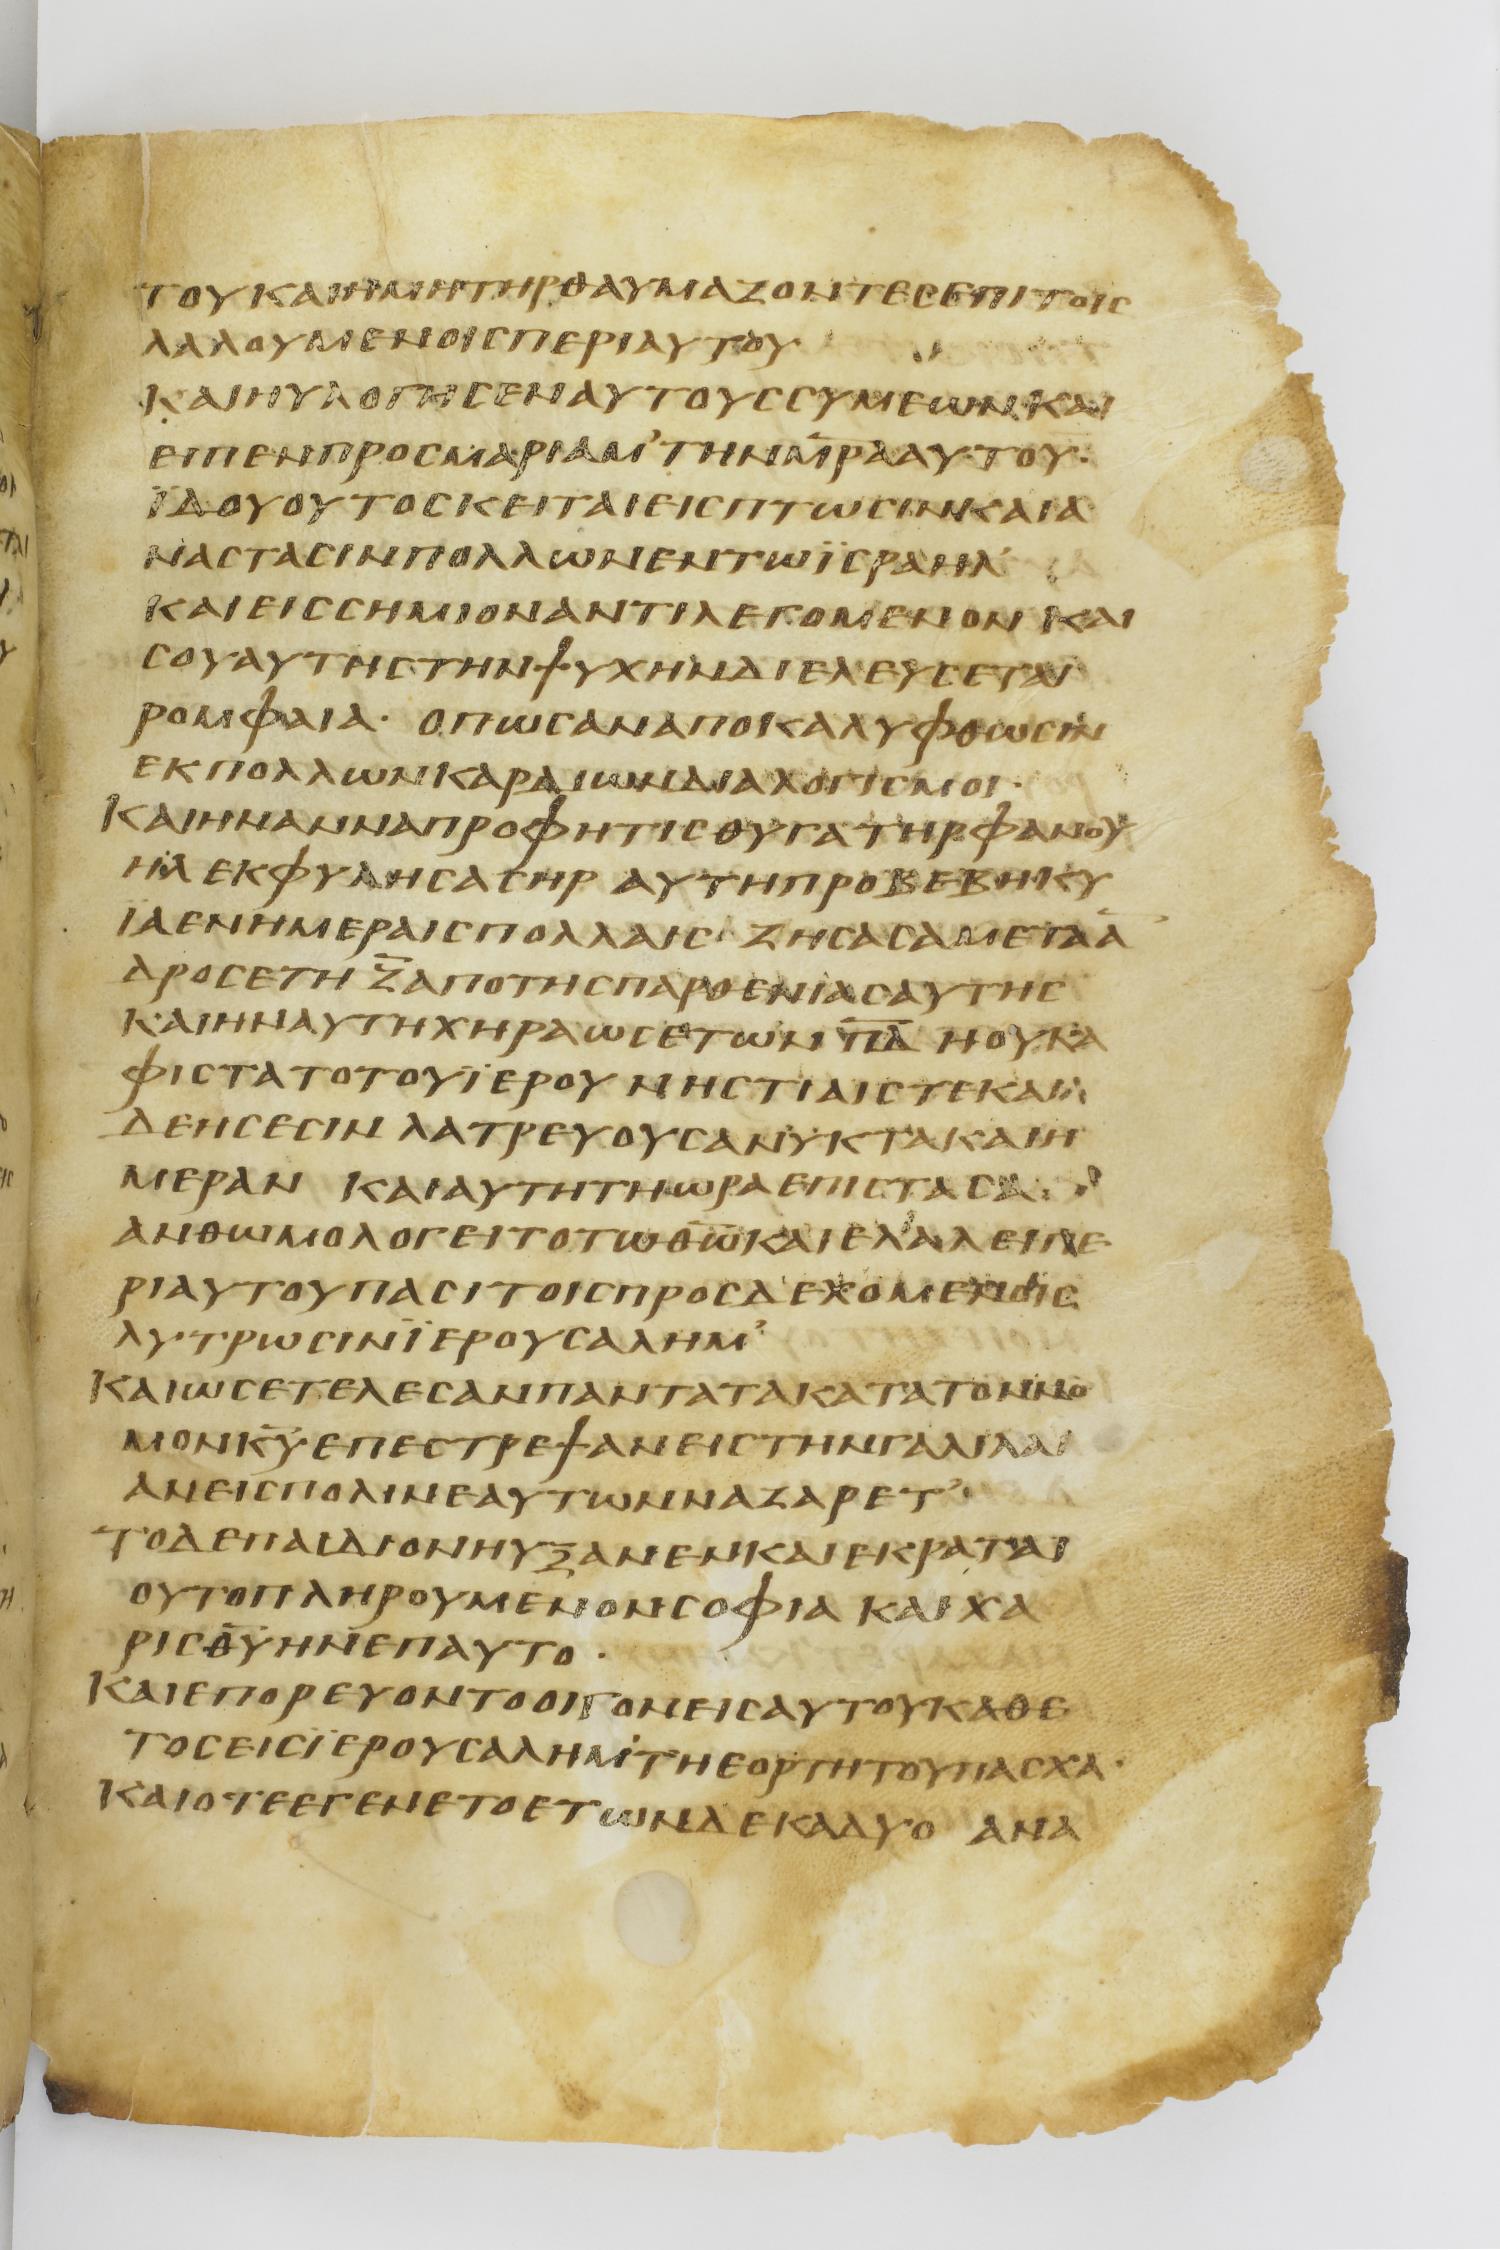 ΤΟΥΚΑΙΗΜΗΤΗΡΘΑΥΜΑΖΟΝΤΕϹΕΠΙΤΟΙϹ
ΛΑΛΟΥΜΕΝΟΙϹΠΕΡΙΑΥΤΟΥ
ΚΑΙΗΥΛΟΓΗϹΕΝΑΥΤΟΥϹϹΥΜΕΩΝΚΑΙ
ΕΙΠΕΝΠΡΟϹΜΑΡΙΑΜ’ΤΗΝΜ̅Ρ̅ΑΑΥΤΟΥ·
ΪΔΟΥΟΥΤΟϹΚΕΙΤΑΙΕΙϹΠΤΩϹΙΝΚΑΙΑ
ΝΑϹΤΑϹΙΝΠΟΛΛΩΝΕΝΤΩΪϹΡΑΗΛ’
ΚΑΙΕΙϹϹΗΜΙΟΝΑΝΤΙΛΕΓΟΜΕΝΟΝ ΚΑΙ
ϹΟΥΑΥΤΗϹΤΗΝΨΥΧΗΝΔΙΕΛΕΥϹΕΤΑΙ
ΡΟΜΦΑΙΑ· ΟΠΩϹΑΝΑΠΟΚΑΛΥΦΘΩϹΙΝ
ΕΚΠΟΛΛΩΝΚΑΡΔΙΩΝΔΙΑΛΟΓΙϹΜΟΙ·
ΚΑΙΗΝΑΝΝΑΠΡΟΦΗΤΙϹΘΥΓΑΤΗΡΦΑΝΟΥ
ΗΛΕΚΦΥΛΗϹΑϹΗΡ ΑΥΤΗΠΡΟΒΕΒΗΚΥ
ΙΑΕΝΗΜΕΡΑΙϹΠΟΛΛΑΙϹ ΖΗϹΑϹΑΜΕΤΑΑ̅
ΔΡΟϹΕΤΗ Ζ̅ΑΠΟΤΗϹΠΑΡΘΕΝΙΑϹΑΥΤΗϹ
ΚΑΙΗΝΑΥΤΗΧΗΡΑΩϹΕΤΩΝ Π̅Δ̅ ΗΟΥΚΑ
ΦΙϹΤΑΤΟΤΟΥΪΕΡΟΥ ΝΗϹΤΙΑΙϹΤΕΚΑΙ
ΔΕΗϹΕϹΙΝ ΛΑΤΡΕΥΟΥϹΑΝΥΚΤΑΚΑΙΗ
ΜΕΡΑΝ ΚΑΙΑΥΤΗΤΗΩΡΑΕΠΙϹΤΑϹΑ
ΑΝΘΩΜΟΛΟΓΕΙΤΟΤΩΘ̅Ω̅ΚΑΙΕΛΑΛΕΙΠΕ
ΡΙΑΥΤΟΥΠΑϹΙΤΟΙϹΠΡΟϹΔΕΧΟΜΕΝΟΙϹ
ΛΥΤΡΩϹΙΝΪΕΡΟΥϹΑΛΗΜ’
ΚΑΙΩϹΕΤΕΛΕϹΑΝΠΑΝΤΑΤΑΚΑΤΑΤΟΝΝΟ
ΜΟΝΚ̅Υ̅·ΕΠΕϹΤΡΕΨΑΝΕΙϹΤΗΝΓΑΛΙΛΑΙ
ΑΝΕΙϹΠΟΛΙΝΕΑΥΤΩΝΝΑΖΑΡΕΤ’
ΤΟΔΕΠΑΙΔΙΟΝΗΥΞΑΝΕΝΚΑΙΕΚΡΑΤΑΙ
ΟΥΤΟΠΛΗΡΟΥΜΕΝΟΝϹΟΦΙΑ ΚΑΙΧΑ
ΡΙϹΘ̅Υ̅ΗΝΕΠΑΥΤΟ·
ΚΑΙΕΠΟΡΕΥΟΝΤΟΟΙΓΟΝΕΙϹΑΥΤΟΥΚΑΘΕ
ΤΟϹΕΙϹΪΕΡΟΥϹΑΛΗΜ’ΤΗΕΟΡΤΗΤΟΥΠΑϹΧΑ·
ΚΑΙΟΤΕΕΓΕΝΕΤΟΕΤΩΝΔΕΚΑΔΥΟ ΑΝΑ